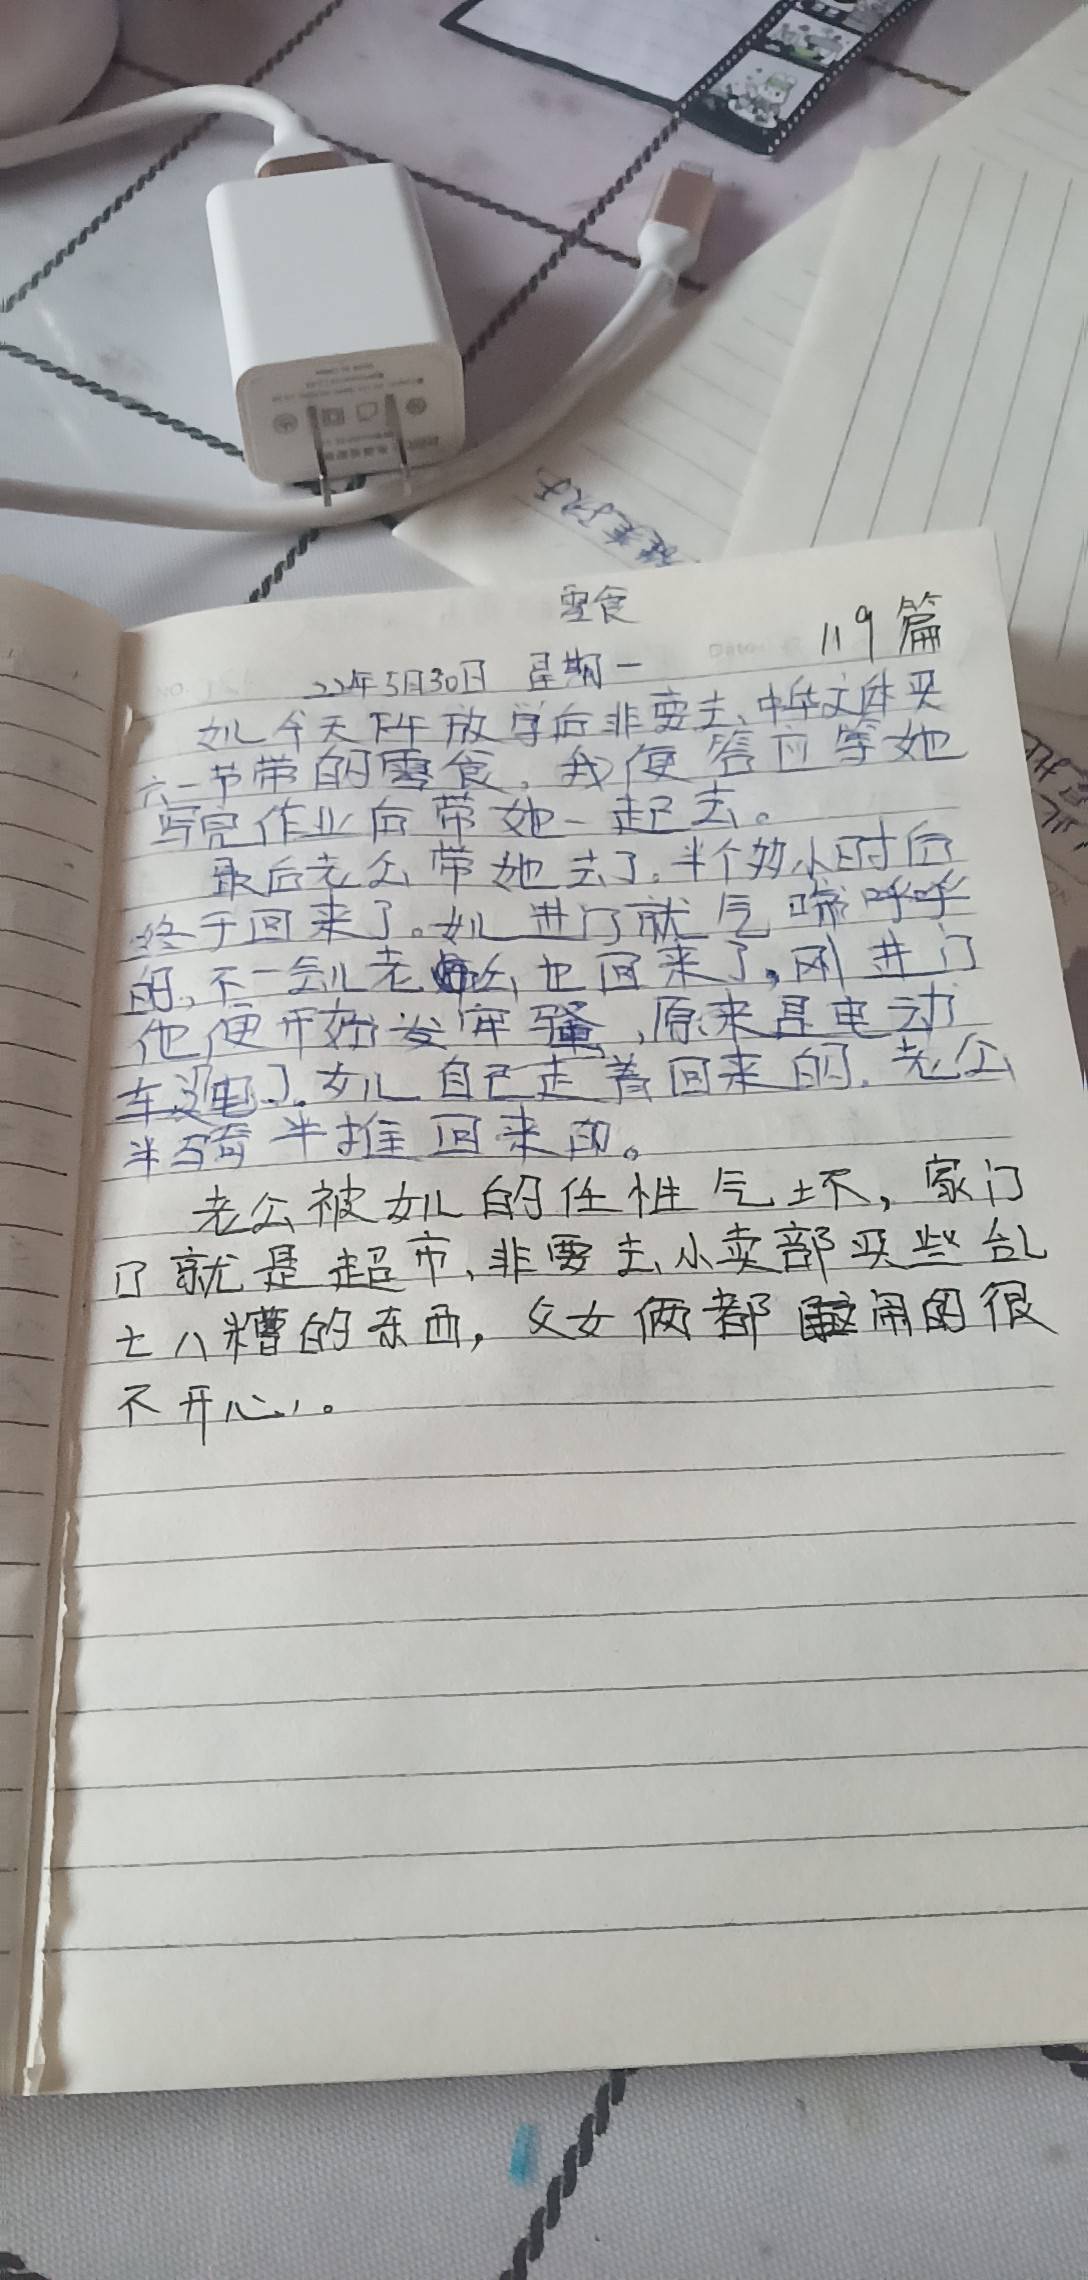 零食
119篇
22年5月30日 星期一
女儿今天下午放学后非要去中华文体买
六一节带的零食,我便答应等她
写完作业后带她一起去。
最后老公带她去了。半个多小时后
终于回来了。女儿进门就气喘呼呼
的,不一会儿老公也回来了,刚进门
他便开始发牢骚,原来是电动
车没电了。女儿自己走着回来的,老公
半骑半推回来的。
老公被女儿的任性气坏,家门
口就是超市、非要去小卖部买些乱
七八糟的东西,父女俩都闹的很
不开心。